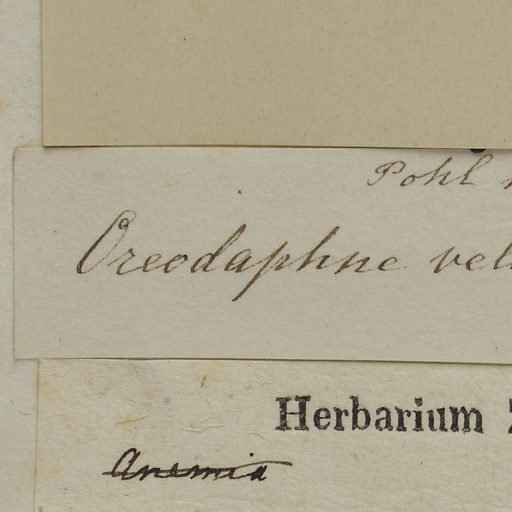 Pohl
Oreodaphne vel
Herbarium
Anemia